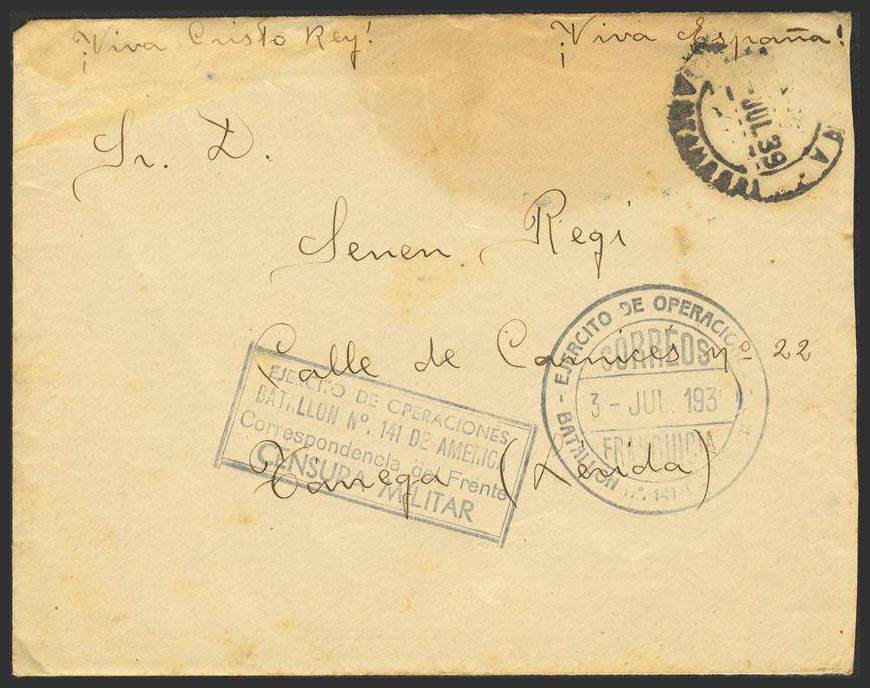 ¡Viva Cristo Rey! ¡Viva España!
JUL 39
Sr. D.
Senen Regi
Calle de Carnicés nº 22
Tárrega (Lérida)
EJERCITO DE OPERACIONES
BATALLON Nº. 141 DE AMERIC
Correspondencia del Frente
CENSURA MILITAR
EJERCITO DE OPERACIO
CORREOS
3 - JUL. 193
FRANQUICIA
BATALLON Nº. 141